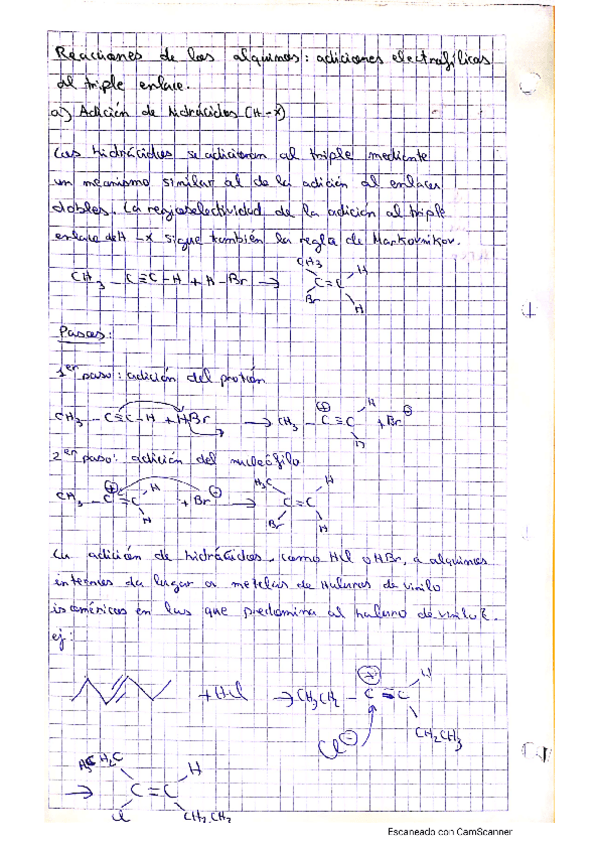 Reacciones de los alquinos: adiciones electrofílicas
al triple enlace.
a) Adición de hidrácidos (H-X)
Los hidrácidos se adicionan al triple mediante
un mecanismo similar al de la adición al enlaces
dobles. La regioselectividad de la adición al triple
enlace de H-X sigue también la regla de Markovnikov.
CH3 - C≡C-H + H-Br → CH3 Br C=C H H
Pasos:
1er paso: adición del protón
CH3 - C≡C-H + HBr → CH3 - C⊕=C H H + Br⊖
2er paso: adición del nucleófilo
CH3 - C⊕=C H H + Br⊖ → H3C Br C=C H H
La adición de hidrácidos, como HCl o HBr, a alquinos
internos da lugar a mezclas de Haluros de vinilo
isoméricos en las que predomina al haluro de vinilo E.
ej:
+ HCl → CH3CH2 - C⊕=C H CH2CH3
Cl⊖
→ H3C H2C Cl C=C H CH2CH3
Escaneado con CamScanner